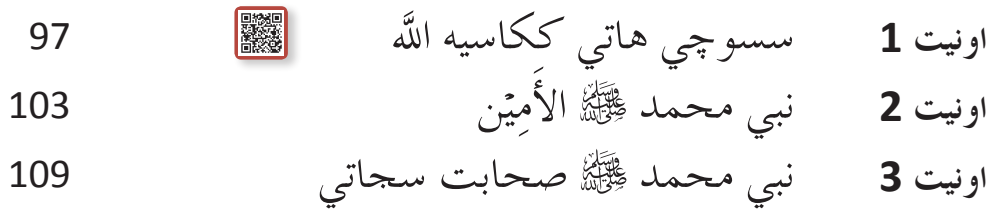 اونيت 1 سسوچي هاتي ککاسيه اللَّه 97
اونيت 2 نبي محمد ﷺ الأَمِيْن 103
اونيت 3 نبي محمد ﷺ صحابت سجاتي 109